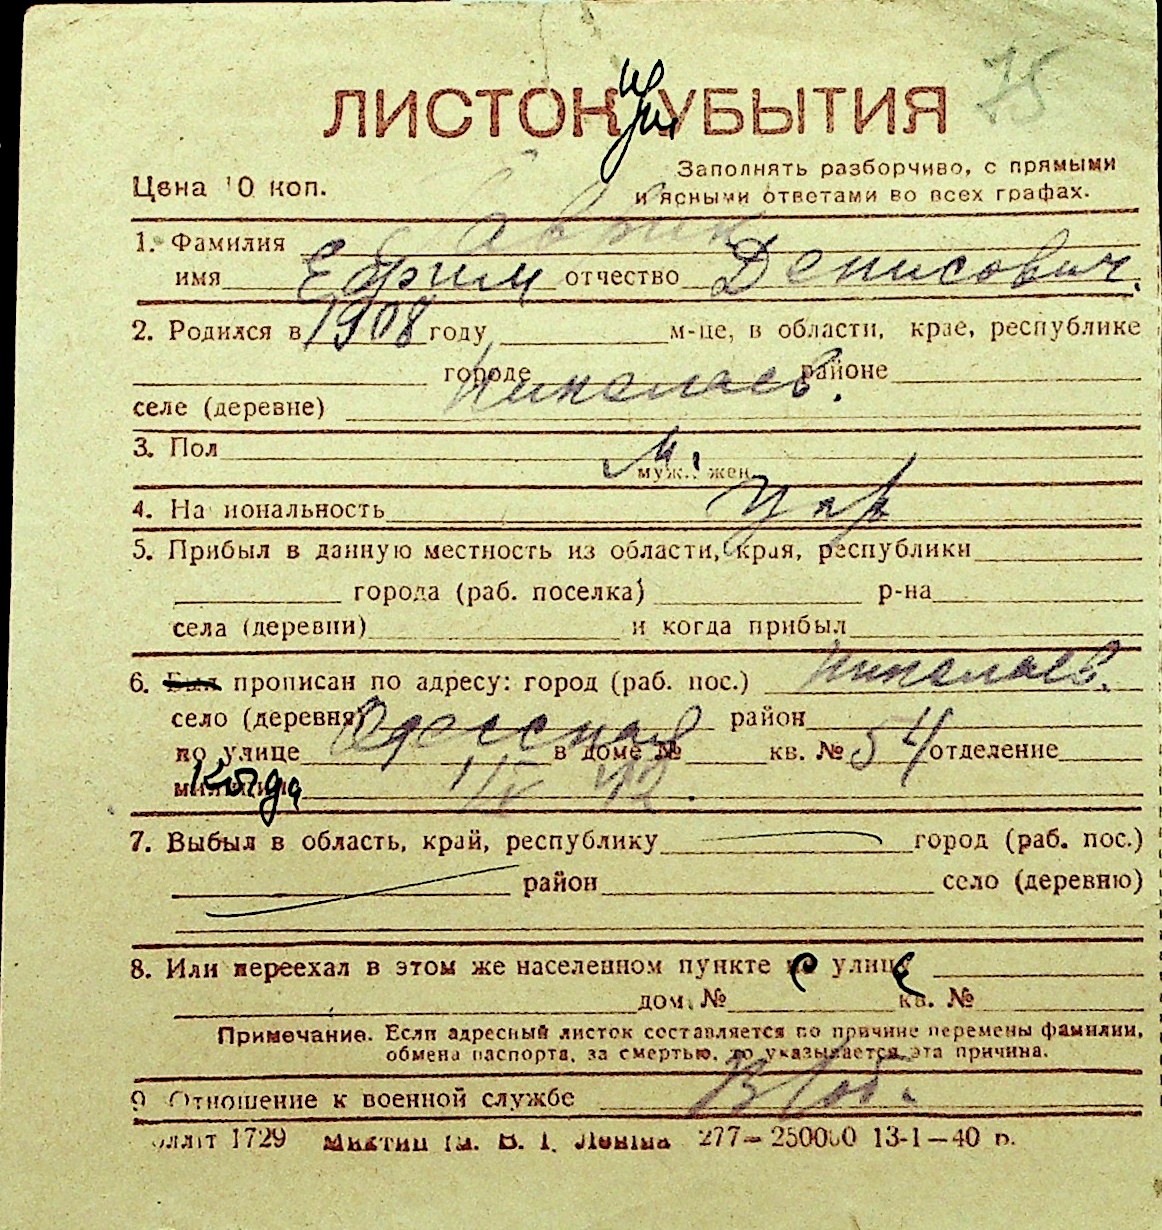 75
ЛИСТОК УБЫТИЯ
Заполнять разборчиво, с прямыми
Цена 10 коп. и ясными ответами во всех графах.
1. Фамилия
имя Ефрим отчество Денисович.
2. Родился в 1908 году м-це, в области, крае, республике
городе Николаев. районе
селе (деревне)
3. Пол м.
муж., жен.
4. Национальность укр
5. Прибыл в данную местность из области, края, республики
города (раб. поселка) р-на
села (деревни) и когда прибыл
6. Был прописан по адресу: город (раб. пос.) Николаев.
село (деревня) район
по улице Одесская в доме № кв. № 54 отделение
милиции Когда 1/IV 42.
7. Выбыл в область, край, республику город (раб. пос.)
район село (деревню)
8. Или переехал в этом же населенном пункте улице
дом. № кв. №
Примечание. Если адресный листок составляется по причине перемены фамилии,
обмена паспорта, за смертью, то указывается эта причина.
9. Отношение к военной службе
1729 ім. В. І. Леніна 277—250000 13-1—40 р.